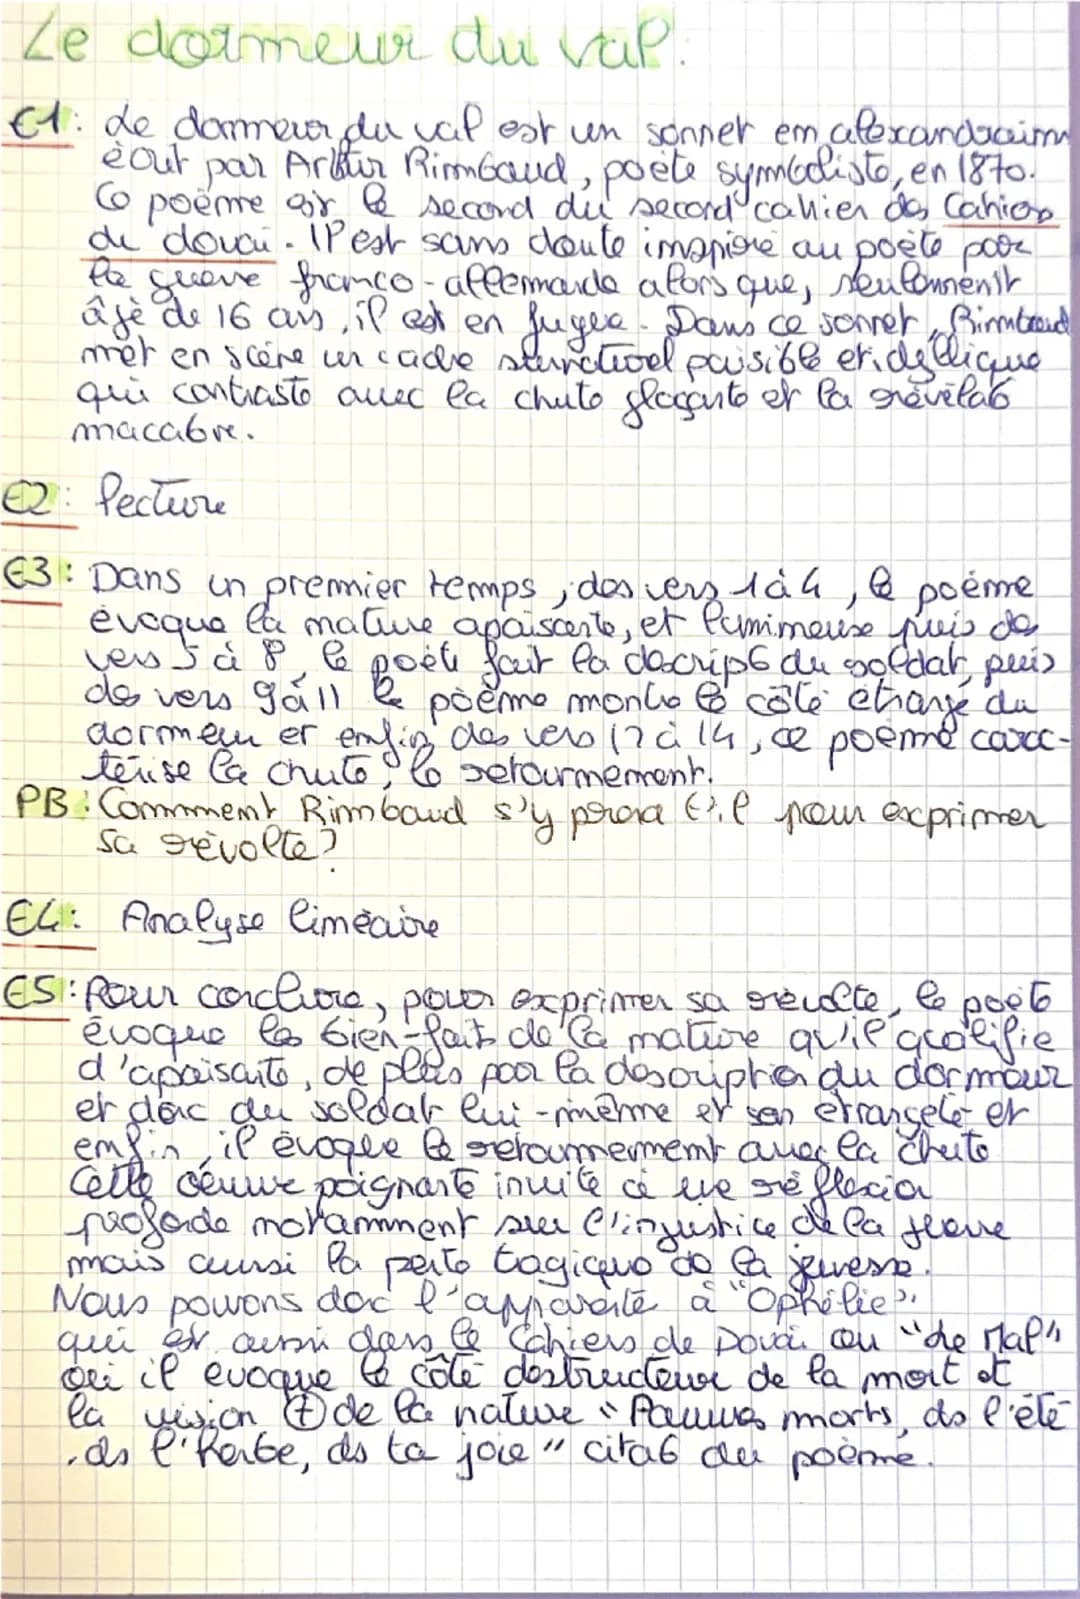 Le dormeur du val.
E1: Le dormeur du val est un sonnet en alexandrains
écrit par Arthur Rimbaud, poète symboliste, en 1870.
Ce poème est le second du second cahier des Cahiers
de douai. Il est sans doute inspiré au poète par
la guerre franco-allemande alors que, seulement
âgé de 16 ans, il est en fugue. Dans ce sonnet, Rimbaud
met en scène un cadre paisible et idyllique
qui contraste avec la chute glaçante et la révélat°
macabre.
E2: lecture
E3: Dans un premier temps, des vers 1 à 4, le poème
évoque la nature apaisante, et lumineuse puis des
vers 5 à 8, le poète fait la descript° du soldat, puis
des vers 9 à 11 le poème montre le côté étrange du
dormeur et enfin des vers 12 à 14, ce poème carac-
térise la chute, le retournement.
PB: Comment Rimbaud s'y prend t-il pour exprimer
sa révolte?
E4: Analyse linéaire
E5: Pour conclure, pour exprimer sa révolte, le poète
évoque les bien-fait de la nature qu'il qualifie
d'apaisante, de plus par la description du dormeur
et donc du soldat lui-même et son étrangeté et
enfin, il évoque le retournement avec la chute
Cette oeuvre poignante invite à une réflexion
profonde notamment sur l'injustice de la guerre
mais aussi la perte tragique de la jeunesse.
Nous pouvons donc l'apparenté à "Ophélie",
qui est aussi dans le Cahiers de Douai ou "Le Mal"
où il évoque le côté destructeur de la mort et
la vision (+) de la nature "Pauvres morts, ds l'été
, ds l'herbe, ds ta joie" citat° du poème.